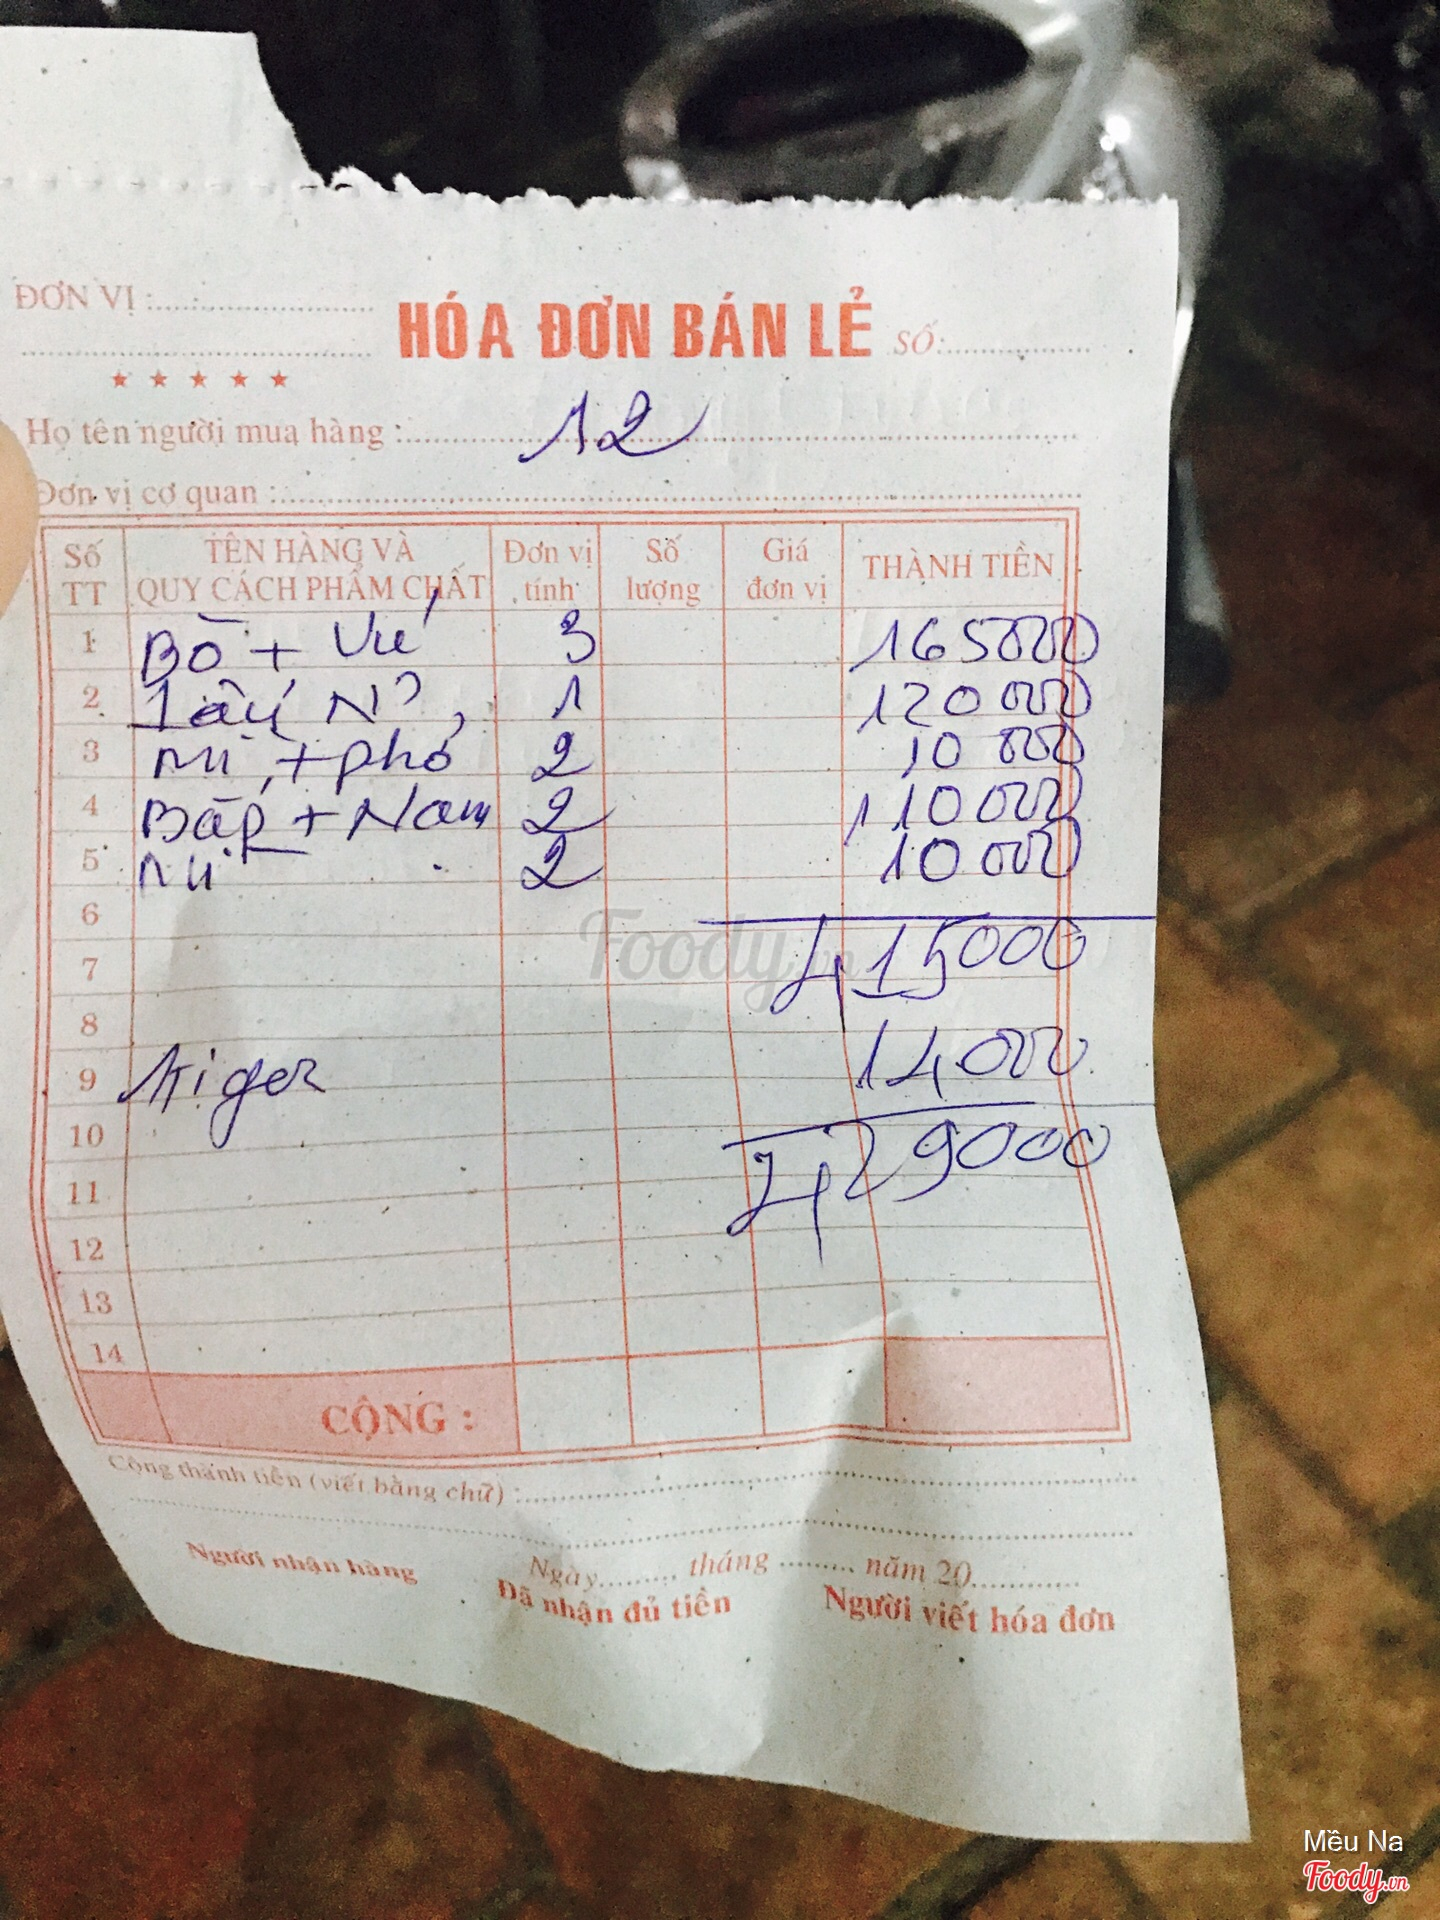 ĐƠN VỊ :
HÓA ĐƠN BÁN LẺ
SỐ:
★ ★ ★ ★ ★
Họ tên người mua hàng : 12
Đơn vị cơ quan :
Số TT TÊN HÀNG VÀ QUY CÁCH PHẨM CHẤT Đơn vị tính Số lượng Giá đơn vị THÀNH TIỀN
1 Bò + Vú 3 165000
2 Lẩu N 1 120000
3 Mì + Phở 2 10 000
4 Bắp + Nam 2 110000
5 Mì 2 10 000
6
7 415000
8
9 Tiger 14000
10 429000
11
12
13
14
CỘNG :
Cộng thành tiền (viết bằng chữ) :
Ngày tháng năm 20
Người nhận hàng Đã nhận đủ tiền Người viết hóa đơn
Foody.vn
Mều Na
Foody.vn